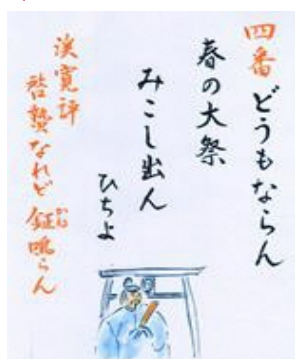 四番 どうもならん
春の大祭
みこし出ん
ひちよ
渓寛評
啓蟄なれど 鉦鳴らん